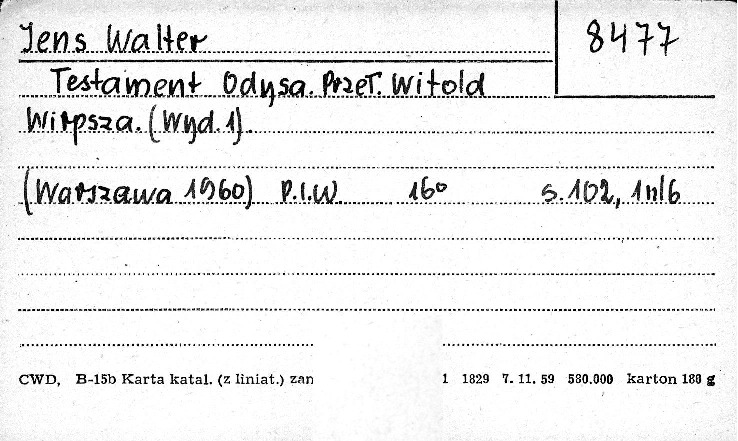 Jens Walter 8477
Testament Odysa. Przeł. Witold
Wirpsza. (Wyd. 1)
(Warszawa 1960) P.I.W. 16° s. 102, 1nlb
CWD, B-15b Karta katal. (z liniat.) zan 1 1829 7. 11. 59 580.000 karton 180 g